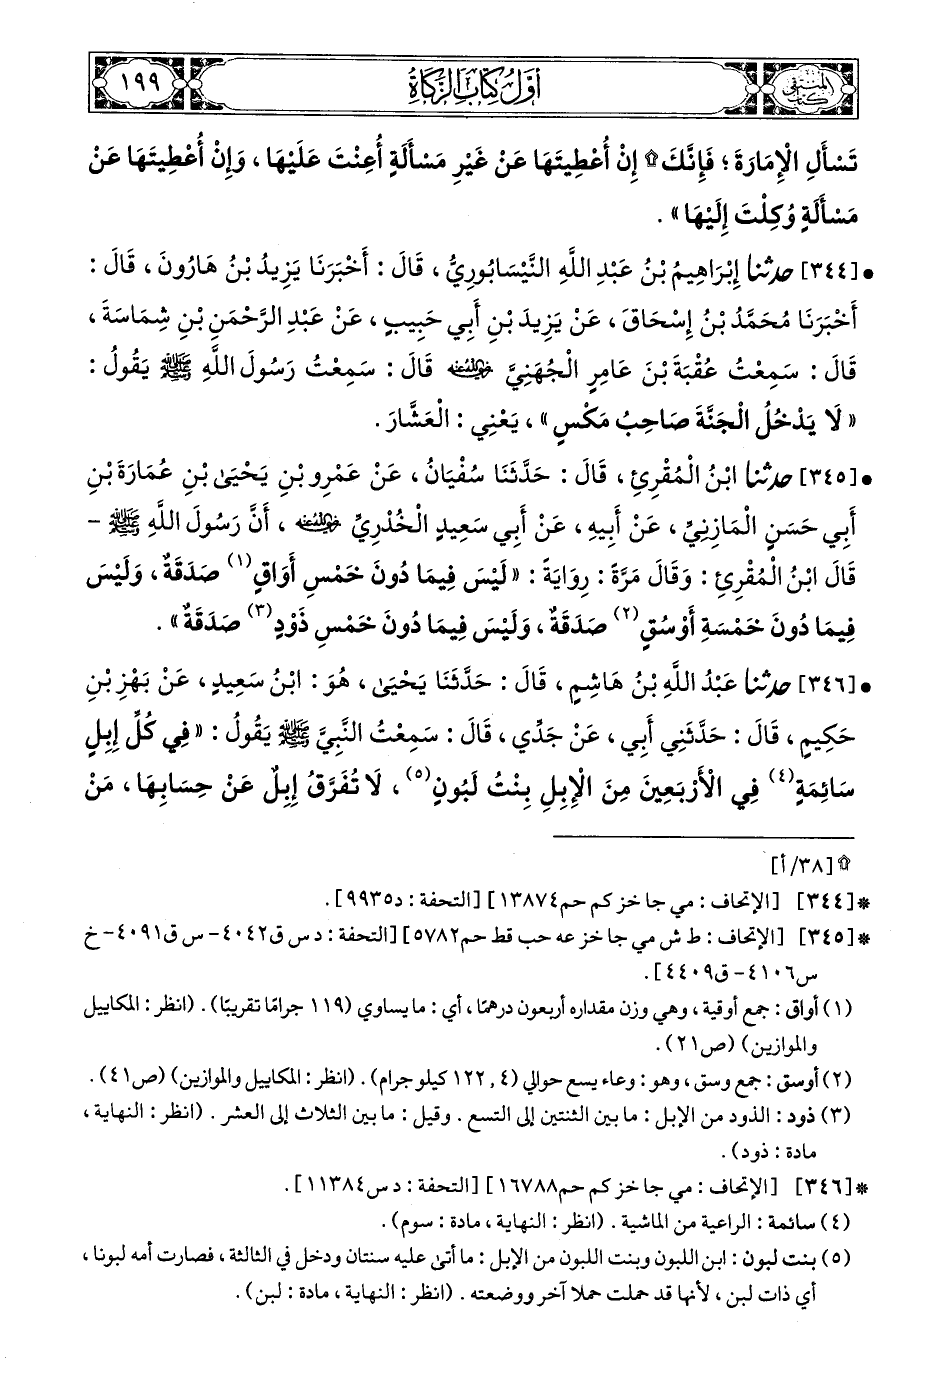 المنتقى كتاب
أَوَّلُ كِتَابِ الزَّكَاةِ
١٩٩
تَسْأَلِ الْإِمَارَةَ ؛ فَإِنَّكَ ۩ إِنْ أُعْطِيتَهَا عَنْ غَيْرِ مَسْأَلَةٍ أُعِنْتَ عَلَيْهَا ، وَإِنْ أُعْطِيتَهَا عَنْ
مَسْأَلَةٍ وُكِلْتَ إِلَيْهَا» .
• [٣٤٤] حدثنا إِبْرَاهِيمُ بْنُ عَبْدِ اللَّهِ النَّيْسَابُورِيُّ ، قَالَ : أَخْبَرَنَا يَزِيدُ بْنُ هَارُونَ ، قَالَ :
أَخْبَرَنَا مُحَمَّدُ بْنُ إِسْحَاقَ ، عَنْ يَزِيدَ بْنِ أَبِي حَبِيبٍ ، عَنْ عَبْدِ الرَّحْمَنِ بْنِ شِمَاسَةَ ،
قَالَ : سَمِعْتُ عُقْبَةَ بْنَ عَامِرٍ الْجُهَنِيَّ رضي الله عنه قَالَ : سَمِعْتُ رَسُولَ اللَّهِ ﷺ يَقُولُ :
«لَا يَدْخُلُ الْجَنَّةَ صَاحِبُ مَكْسٍ» ، يَعْنِي : الْعَشَّارَ .
• [٣٤٥] حدثنا ابْنُ الْمُقْرِئِ ، قَالَ : حَدَّثَنَا سُفْيَانُ ، عَنْ عَمْرِو بْنِ يَحْيَىٰ بْنِ عُمَارَةَ بْنِ
أَبِي حَسَنٍ الْمَازِنِيِّ ، عَنْ أَبِيهِ ، عَنْ أَبِي سَعِيدٍ الْخُدْرِيِّ رضي الله عنه ، أَنَّ رَسُولَ اللَّهِ ﷺ -
قَالَ ابْنُ الْمُقْرِئِ : وَقَالَ مَرَّةً : رِوَايَةً : «لَيْسَ فِيمَا دُونَ خَمْسِ أَوَاقٍ(١) صَدَقَةٌ ، وَلَيْسَ
فِيمَا دُونَ خَمْسَةِ أَوْسُقٍ(٢) صَدَقَةٌ ، وَلَيْسَ فِيمَا دُونَ خَمْسِ ذَوْدٍ(٣) صَدَقَةٌ» .
• [٣٤٦] حدثنا عَبْدُ اللَّهِ بْنُ هَاشِمٍ ، قَالَ : حَدَّثَنَا يَحْيَىٰ ، هُوَ : ابْنُ سَعِيدٍ ، عَنْ بَهْزِ بْنِ
حَكِيمٍ ، قَالَ : حَدَّثَنِي أَبِي ، عَنْ جَدِّي ، قَالَ : سَمِعْتُ النَّبِيَّ ﷺ يَقُولُ : «فِي كُلِّ إِبِلٍ
سَائِمَةٍ(٤) فِي الْأَرْبَعِينَ مِنَ الْإِبِلِ بِنْتُ لَبُونٍ(٥) ، لَا تُفَرَّقُ إِبِلٌ عَنْ حِسَابِهَا ، مَنْ
۩ [٣٨/ أ]
* [٣٤٤] [الإتحاف : مي جا خز كم حم١٣٨٧٤] [التحفة : د٩٩٣٥] .
* [٣٤٥] [الإتحاف : ط ش مي جا خز عه حب قط حم٥٧٨٢] [التحفة : د س ق٤٠٤٢- س ق٤٠٩١- خ
س٤١٠٦- ق٤٤٠٩] .
(١) أواق : جمع أوقية ، وهي وزن مقداره أربعون درهمًا ، أي : ما يساوي (١١٩ جرامًا تقريبًا) . (انظر : المكاييل
والموازين) (ص٢١) .
(٢) أوسق : جمع وسق ، وهو : وعاء يسع حوالي (٤ , ١٢٢ كيلو جرام) . (انظر : المكاييل والموازين) (ص٤١) .
(٣) ذود : الذود من الإبل : ما بين الثنتين إلى التسع . وقيل : ما بين الثلاث إلى العشر . (انظر : النهاية ،
مادة : ذود) .
* [٣٤٦] [الإتحاف : مي جا خز كم حم١٦٧٨٨] [التحفة : د س١١٣٨٤] .
(٤) سائمة : الراعية من الماشية . (انظر : النهاية ، مادة : سوم) .
(٥) بنت لبون : ابن اللبون وبنت اللبون من الإبل : ما أتى عليه سنتان ودخل في الثالثة ، فصارت أمه لبونا ،
أي ذات لبن ، لأنها قد حملت حملا آخر ووضعته . (انظر : النهاية ، مادة : لبن) .